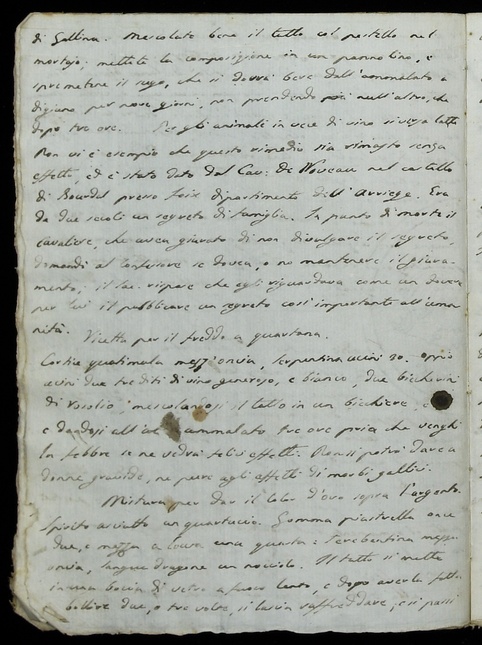 di Gallina. Mescolate bene il tutto col pestello nel
mortajo; mettete la composizione in un pannolino, e
spremetene il sugo, che si dovrà bere dall'ammalato a
digiuno per nove giorni, non prendendo poi null'altro, che
dopo tre ore. Per gli animali in vece di vino si versa latte
Non vi è esempio che questo rimedio sia rimasto senza
effetto, ed è stato dato dal Cav: De nel castello
di presso Foix dipartimento dell'Arriege. Era
da due secoli un segreto di famiglia. In punto di morte il
cavaliere, che avea giurato di non divulgare il segreto,
domandò al confessore se dovea, o no mantenere il giura-
mento; il rispose che egli riguardava come un dovere
per lui il pubblicare un segreto così importante all'uma
nità.
Ricetta per il freddo a quartana.
Cortice quatimala mezz'oncia, serpentina acini 20. oppio
acini due tre diti di vino generoso, e bianco, due bicchierini
di rosolio; mescolandosi il tutto in un bicchiere, e
e dandosi all' ammalato tre ore pria che venghi
la febbre se ne vedrà felici effetti. Non si potrà dare a
donne gravide, ne pure agli effetti di morbi gallici.
Mistura per dar il color d'oro sopra l'argento.
Spirito acvietto un quartuccio. Gomma piastrella once
due, e mezza una quarta e Terebentina mezza
oncia, sangue dragone un nocciolo. Il tutto si metta
in una bocia di vetro a fuoco lento, e dopo averla fatto
bollire due, o tre volte, si lascia raffreddare, e si passi